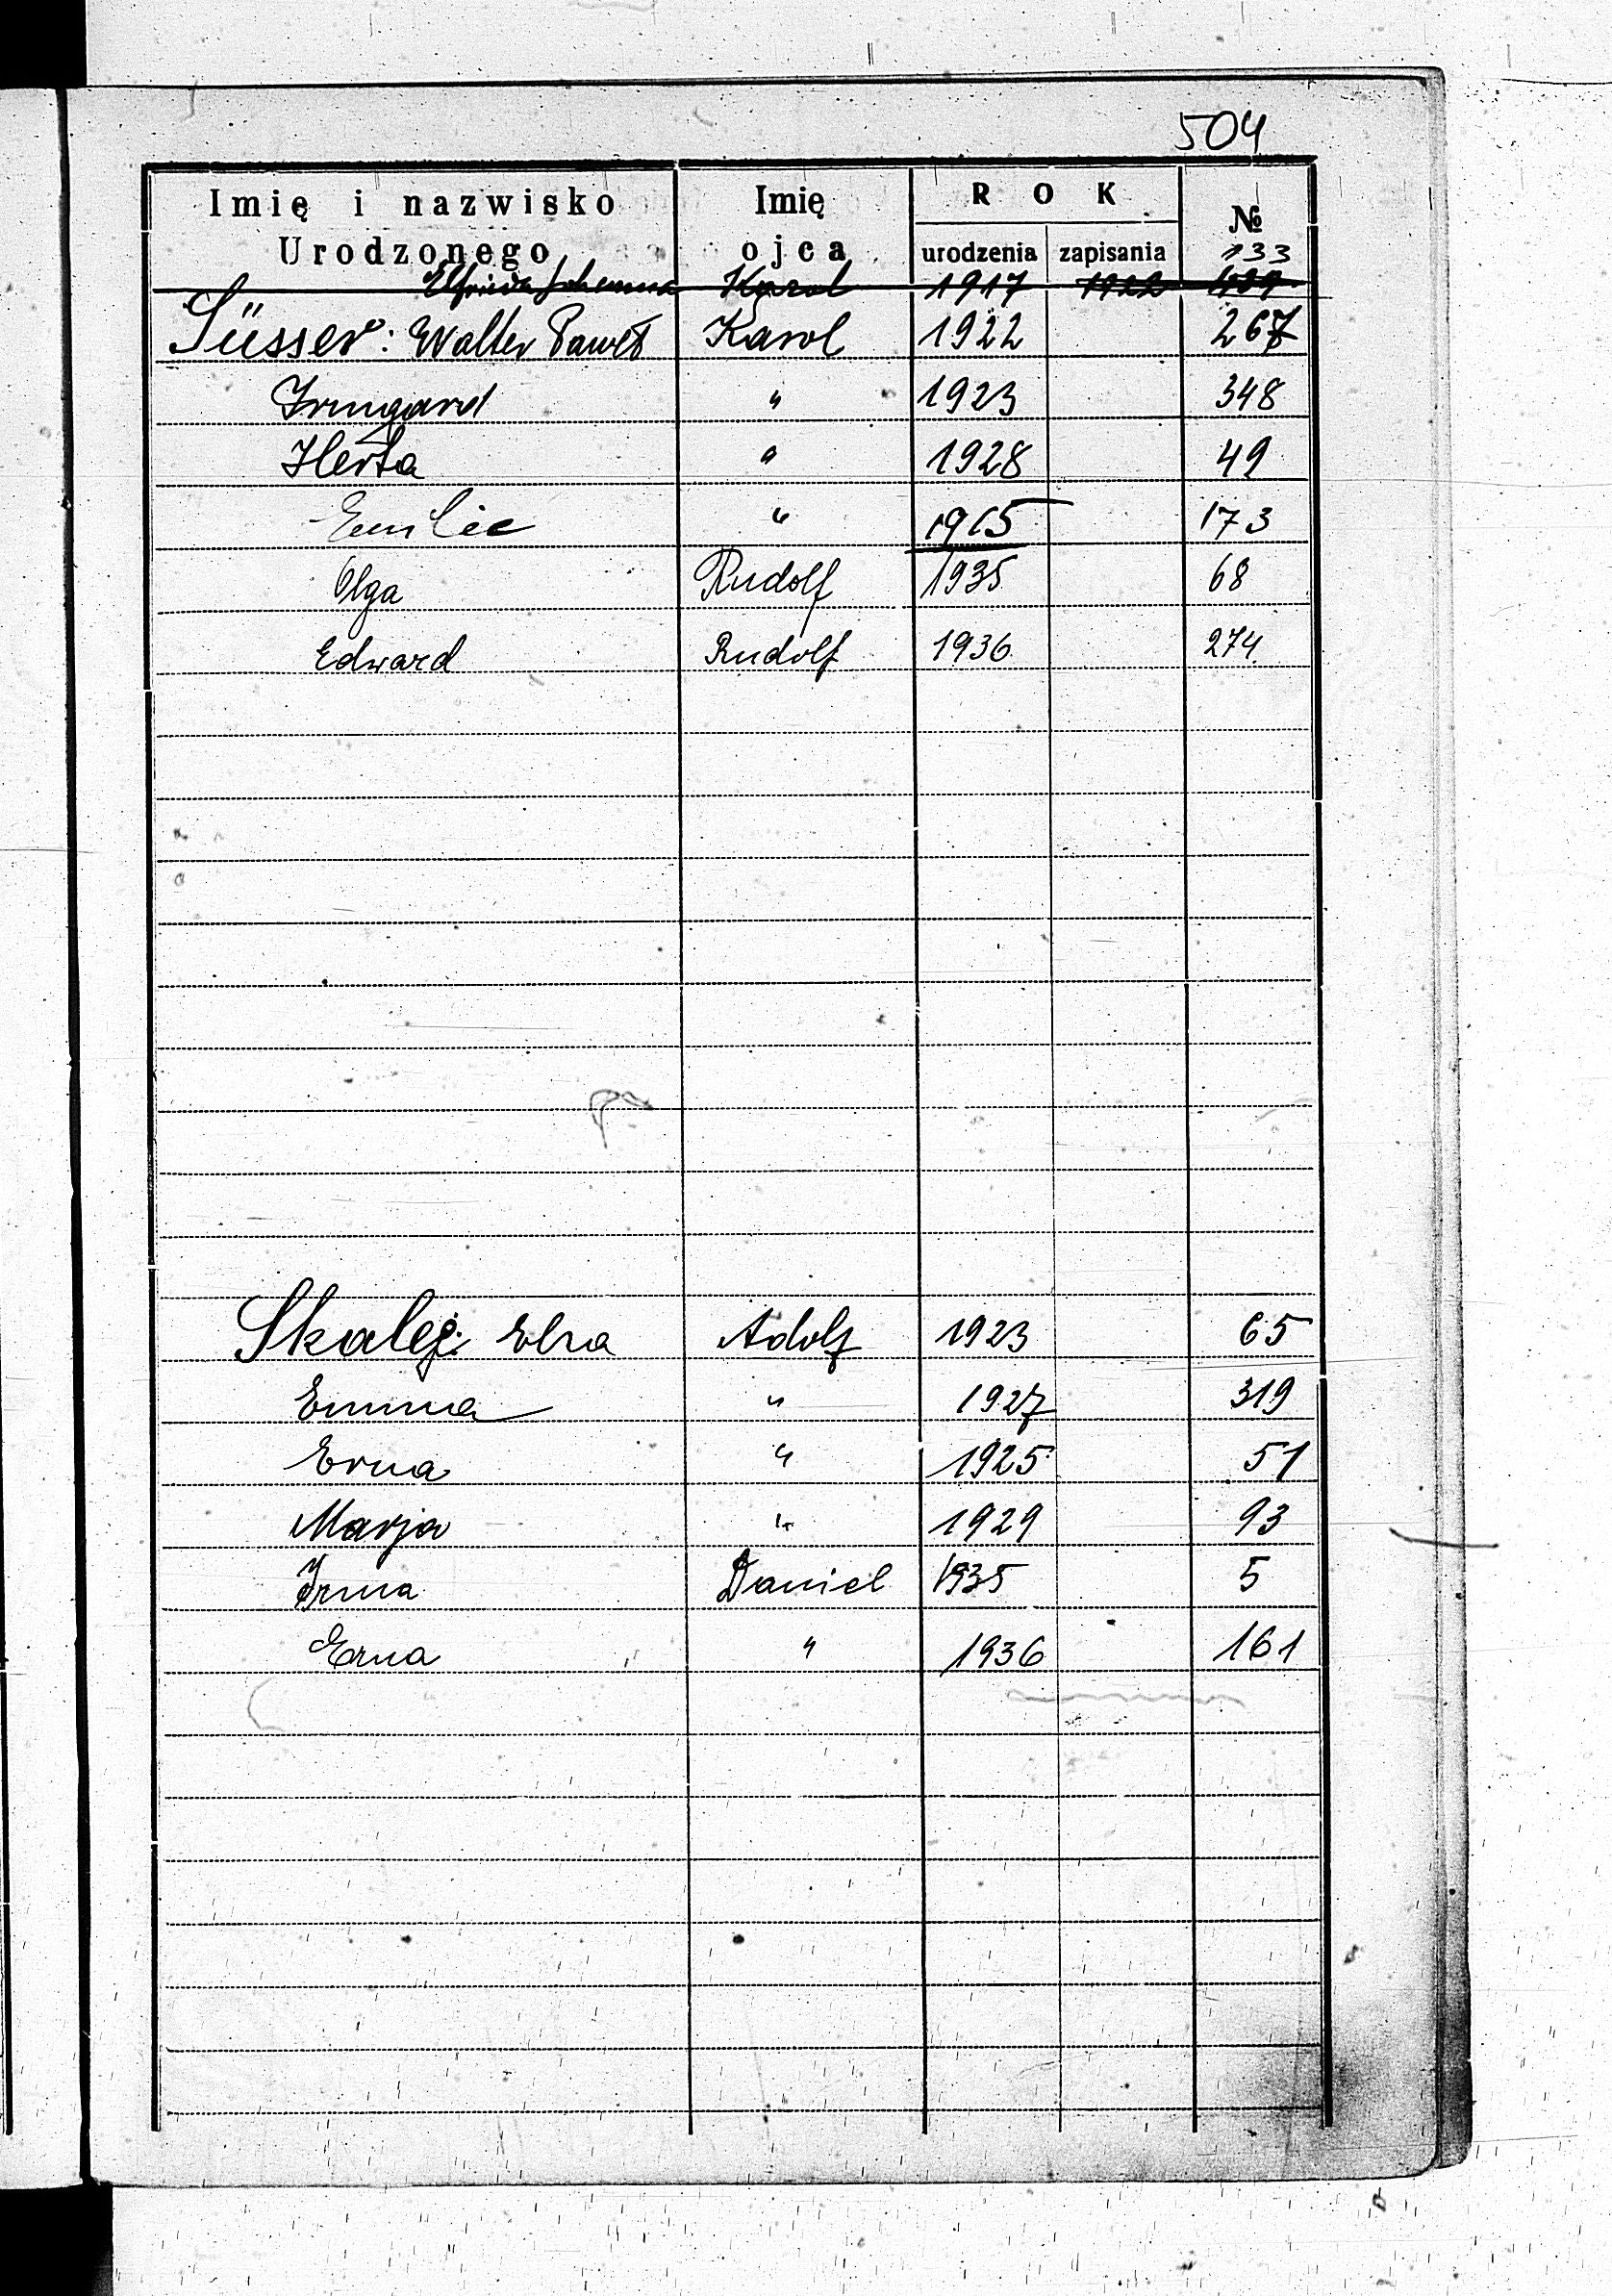 504
Imię i nazwisko Urodzonego Imię ojca ROK urodzenia zapisania №
133
Elfrieda Johanna Karol 1917 1922
Süsser: Walter Paweł Karol 1922 267
Irmgard " 1923 348
Herta " 1928 49
Emilie " 1915 173
Olga Rudolf 1935 68
Edward Rudolf 1936 274
Skalej: Elsa Adolf 1923 65
Emma " 1927 319
Erna " 1925 51
Marja " 1929 93
Irma Daniel 1935 5
Erna " 1936 161